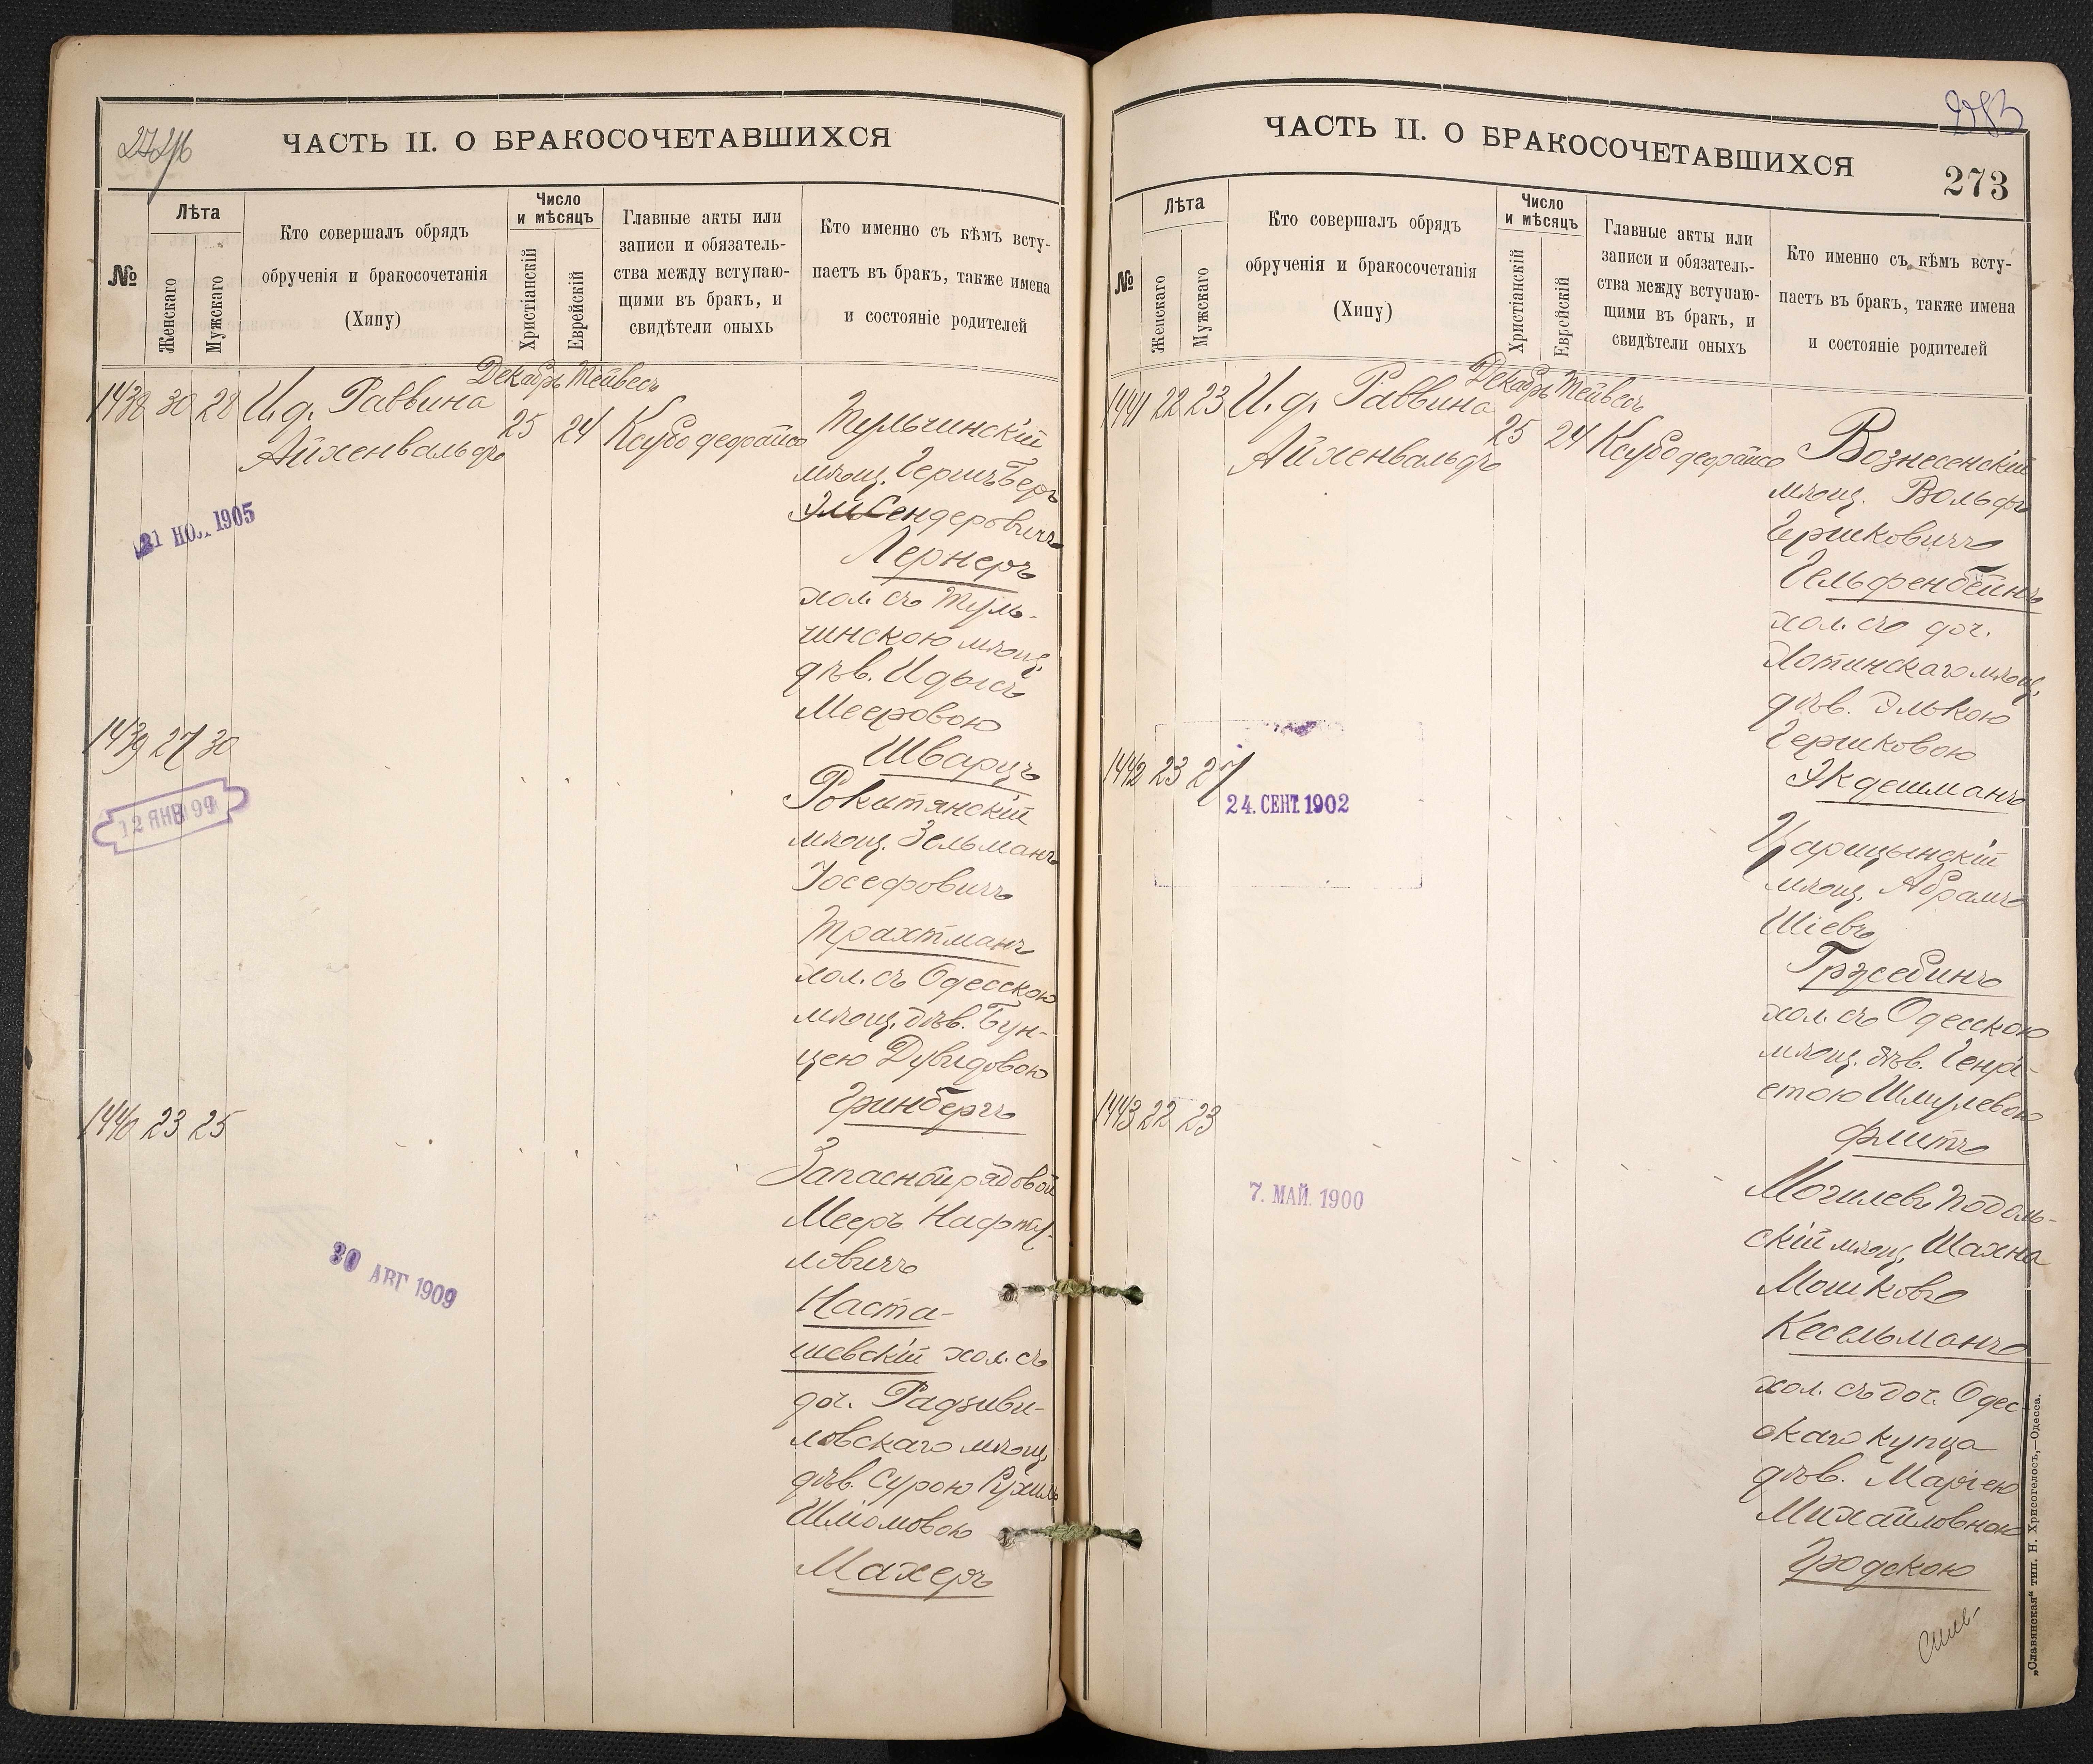 ЧАСТЬ II. О БРАКОСОЧЕТАВШИХСЯ
№
Лѣта
Женскаго
Мужскаго
Кто совершалъ обрядъ
обрученія и бракосочетанія
(Хипу)
Число
и мѣсяцъ
Христіанскій
Еврейскій
Главные акты или
записи и обязатель-
ства между вступаю-
щими въ бракъ, и
свидѣтели оныхъ
Кто именно съ кѣмъ всту-
паетъ въ бракъ, также имена
и состояніе родителей
Декабрь Тейвесъ
1438 30 28 И. д. Раввина
Айхенвальдъ
25 24
Тульчинскій
мѣщ. Гершъ Беръ
Сендеровичъ
Лернеръ
хол. съ Туль-
чинскою мѣщ.
дѣв. Идысъ
Мееровою
Шварцъ
21 НО. 1905
1439 27 30
12 ЯНВ 99
Рокитянскій
мѣщ. Зельманъ
Іосефовичъ
Трахтманъ
хол. съ Одесскою
мѣщ. дѣв. Бун-
цею Дувидовою
Гринбергъ
1440 23 25
30 АВГ 1909
Запасной рядовой
Мееръ Нафту-
ловичъ
Наста-
шевскій хол. съ
доч. Радзиви-
ловскаго мѣщ.
дѣв. Сурою Рухиль
Шліомовою
Махеръ
ЧАСТЬ II. О БРАКОСОЧЕТАВШИХСЯ
273
№
Лѣта
Женскаго
Мужскаго
Кто совершалъ обрядъ
обрученія и бракосочетанія
(Хипу)
Число
и мѣсяцъ
Христіанскій
Еврейскій
Главные акты или
записи и обязатель-
ства между вступаю-
щими въ бракъ, и
свидѣтели оныхъ
Кто именно съ кѣмъ всту-
паетъ въ бракъ, также имена
и состояніе родителей
Декабрь Тейвесъ
1441 22 23 И. д. Раввина
Айхенвальдъ
25 24
Вознесенскій
мѣщ. Вольфъ
Гершковичъ
Гельфенбейнъ
хол. съ доч.
Хотинскаго мѣщ.
дѣв. Элькою
Гершковою
Экдешманъ
1442 23 27
24. СЕНТ. 1902
Царицынскій
мѣщ. Абрамъ
Шіевъ
Гржебинъ
хол. съ Одесскою
мѣщ. дѣв. Генрі-
етою Шмулевою
Флитъ
1443 22 23
7. МАЙ. 1900
Могилевъ Подоль-
скій мѣщ. Шахна
Мошковъ
Кесельманъ
хол. съ доч. Одес-
скаго купца
дѣв. Маріею
Михайловною
Гродскою
„Славянская“ тип. Н. Хрисогелосъ,—Одесса.